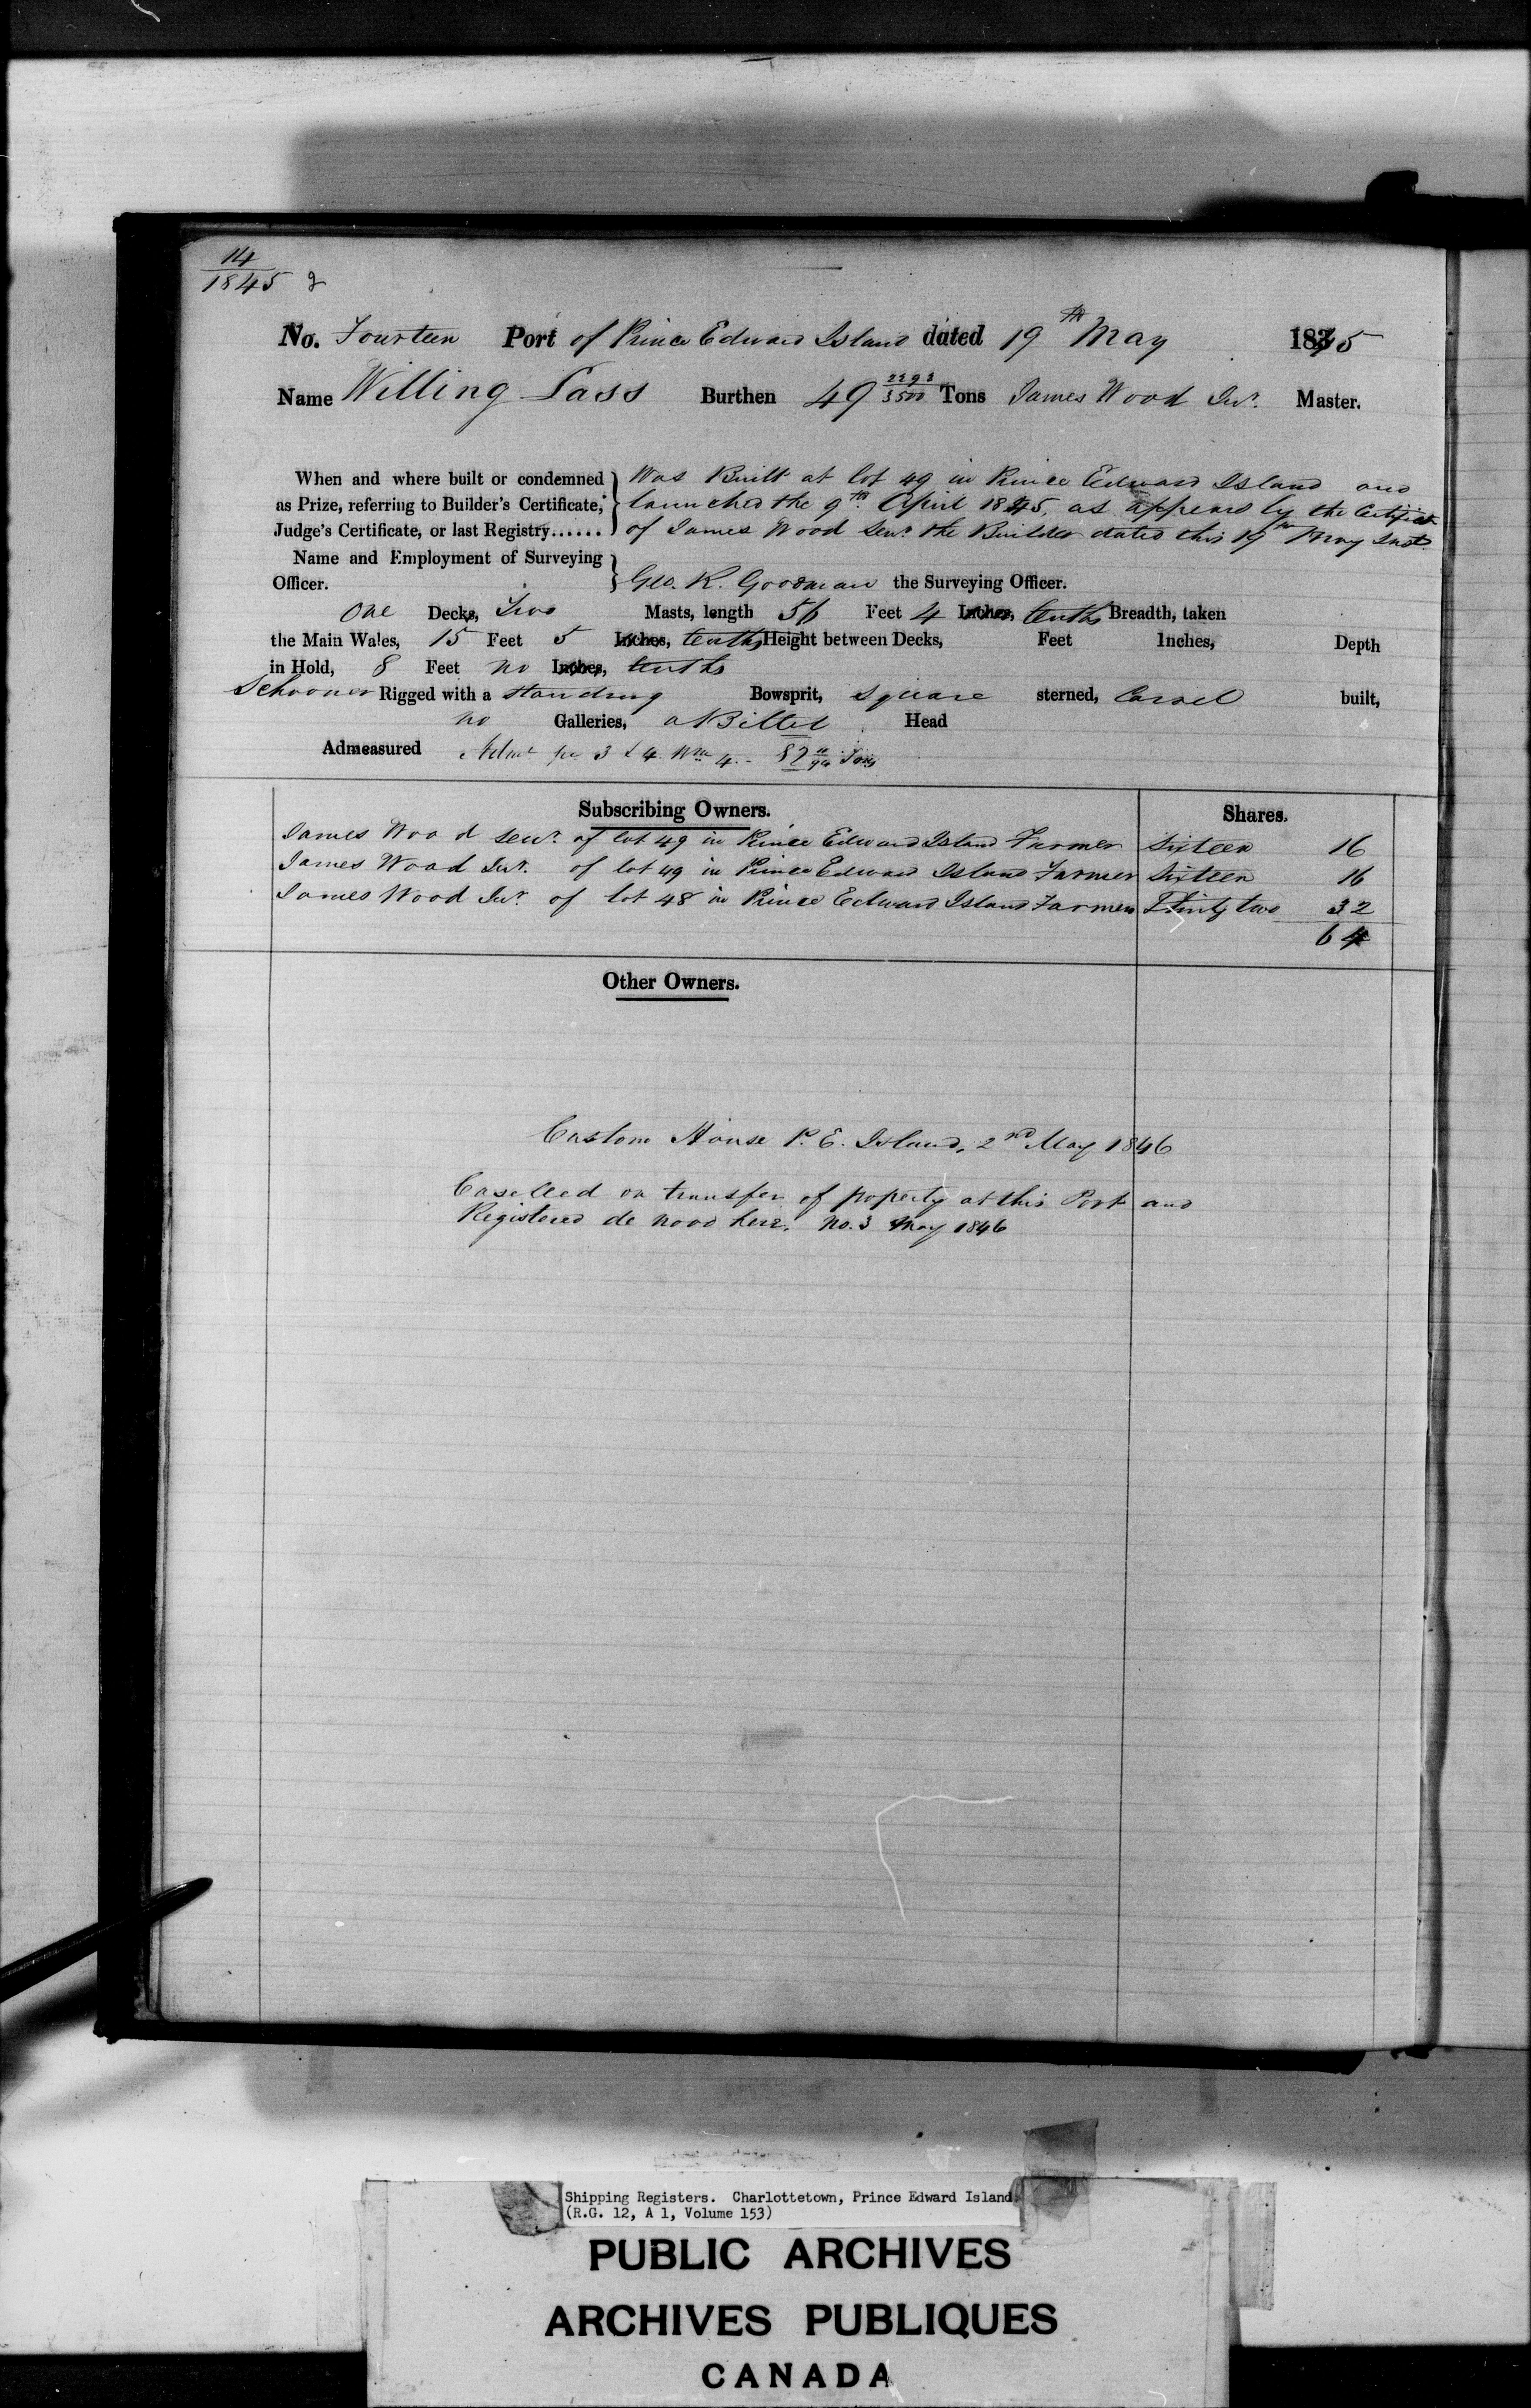 14
1845 2
No. Fourteen Port of Prince Edward Island dated 19th May 1845
Name Willing Lass Burthen 49 2293/3500 Tons James Wood Junr. Master.
When and where built or condemned as Prize, referring to Builder's Certificate, Judge's Certificate, or last Registry......
Was Built at lot 49 in Prince Edward Island and
launched the 9th April 1845, as appears by the Certificate
of James Wood Senr. the Builder dated this 19th May Inst.
Name and Employment of Surveying Officer.
Geo. R. Goodman the Surveying Officer.
One Decks, Two Masts, length 56 Feet 4 Inches, tenths Breadth, taken
the Main Wales, 15 Feet 5 Inches, tenths Height between Decks, Feet Inches, Depth
in Hold, 8 Feet no Inches, tenths
Schooner Rigged with a standing Bowsprit, square sterned, Carvel built,
no Galleries, a Billet Head
Admeasured Admt per 3 & 4 Wm 4. - Tons
Subscribing Owners. Shares.
James Wood Senr. of lot 49 in Prince Edward Island Farmer Sixteen 16
James Wood Junr. of lot 49 in Prince Edward Island Farmer Sixteen 16
James Wood Junr. of lot 48 in Prince Edward Island Farmer Thirty two 32
64
Other Owners.
Custom House P. E. Island, 2nd May 1846
Cancelled on transfer of property at this Port and
Registered de novo here. No. 3 May 1846
Shipping Registers. Charlottetown, Prince Edward Island.
(R.G. 12, A 1, Volume 153)
PUBLIC ARCHIVES
ARCHIVES PUBLIQUES
CANADA